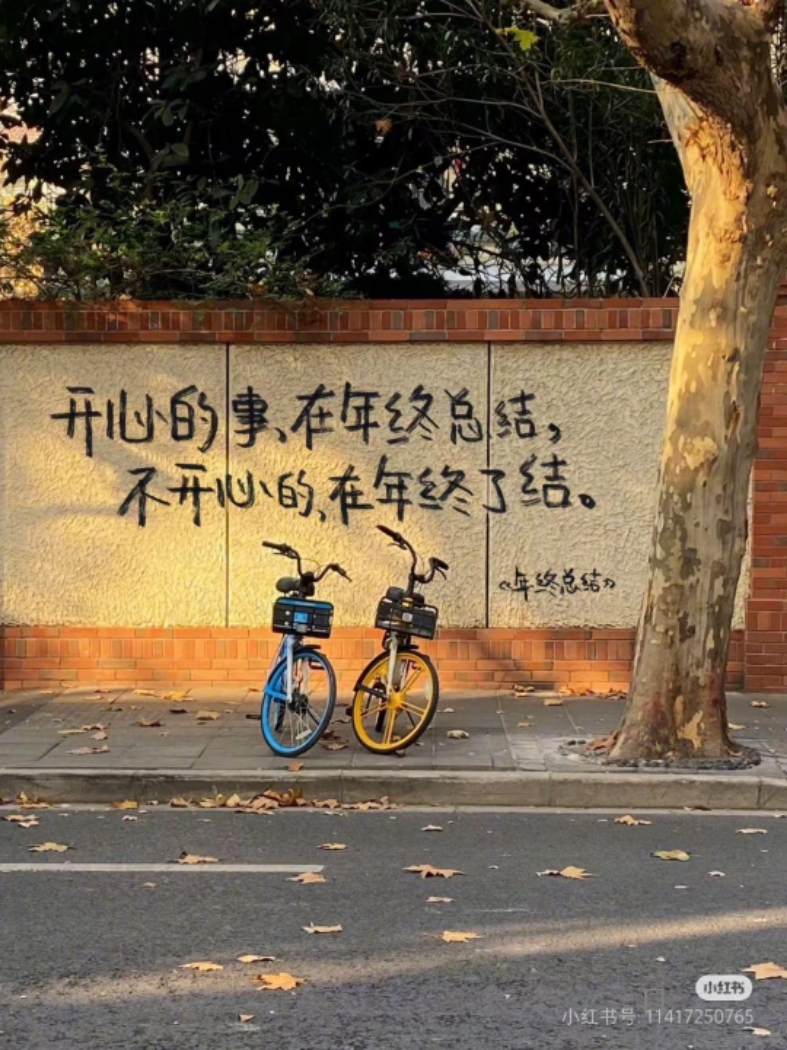 开心的事、在年终总结，
不开心的、在年终了结。
《年终总结》
小红书
小红书号: 11417250765